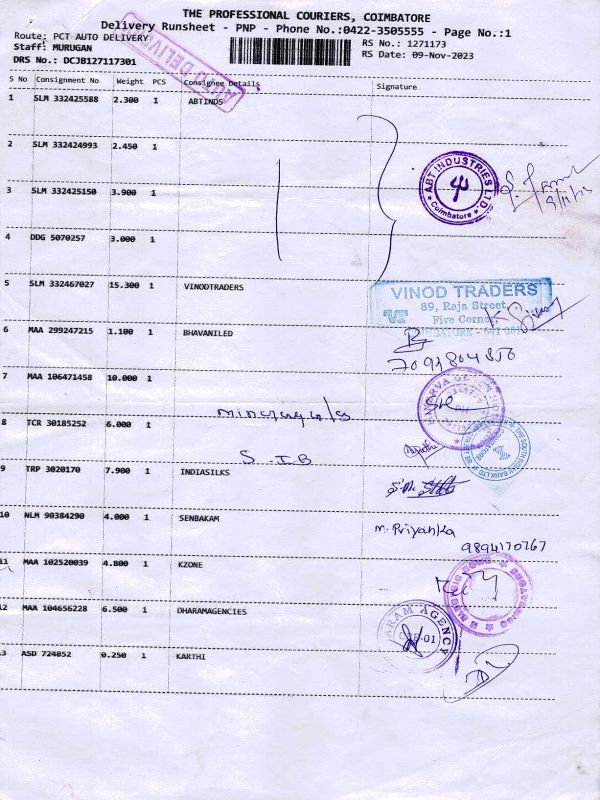 THE PROFESSIONAL COURIERS, COIMBATORE
Delivery Runsheet - PNP - Phone No.:0422-3505555 - Page No.:1
Route: PCT AUTO DELIVERY RS No.: 1271173
Staff: MURUGAN RS Date: 09-Nov-2023
DRS No.: DCJB1271117301
AUTO DELIVERY
S No Consignment No Weight PCS Consignee Details Signature
1 SLM 332425588 2.300 1 ABTINDS
2 SLM 332424993 2.450 1
3 SLM 332425150 3.900 1
ABT INDUSTRIES LTD.
Coimbatore
9/11/23
4 DDG 5070257 3.000 1
5 SLM 332467027 15.300 1 VINODTRADERS
VINOD TRADERS
89, Raja Street,
Five Corner,
COIMBATORE - 641 001
6 MAA 299247215 1.100 1 BHAVANILED
7 MAA 106471458 10.000 1
8 TCR 30185252 6.000 1
S I B
9 TRP 3020170 7.900 1 INDIASILKS
10 NLM 90384290 4.000 1 SENBAKAM
M. Priyanka
9894170767
11 MAA 102520039 4.800 1 KZONE
12 MAA 104656228 6.500 1 DHARAMAGENCIES
DHARAM AGENCY
CBE-01
13 ASD 724852 0.250 1 KARTHI